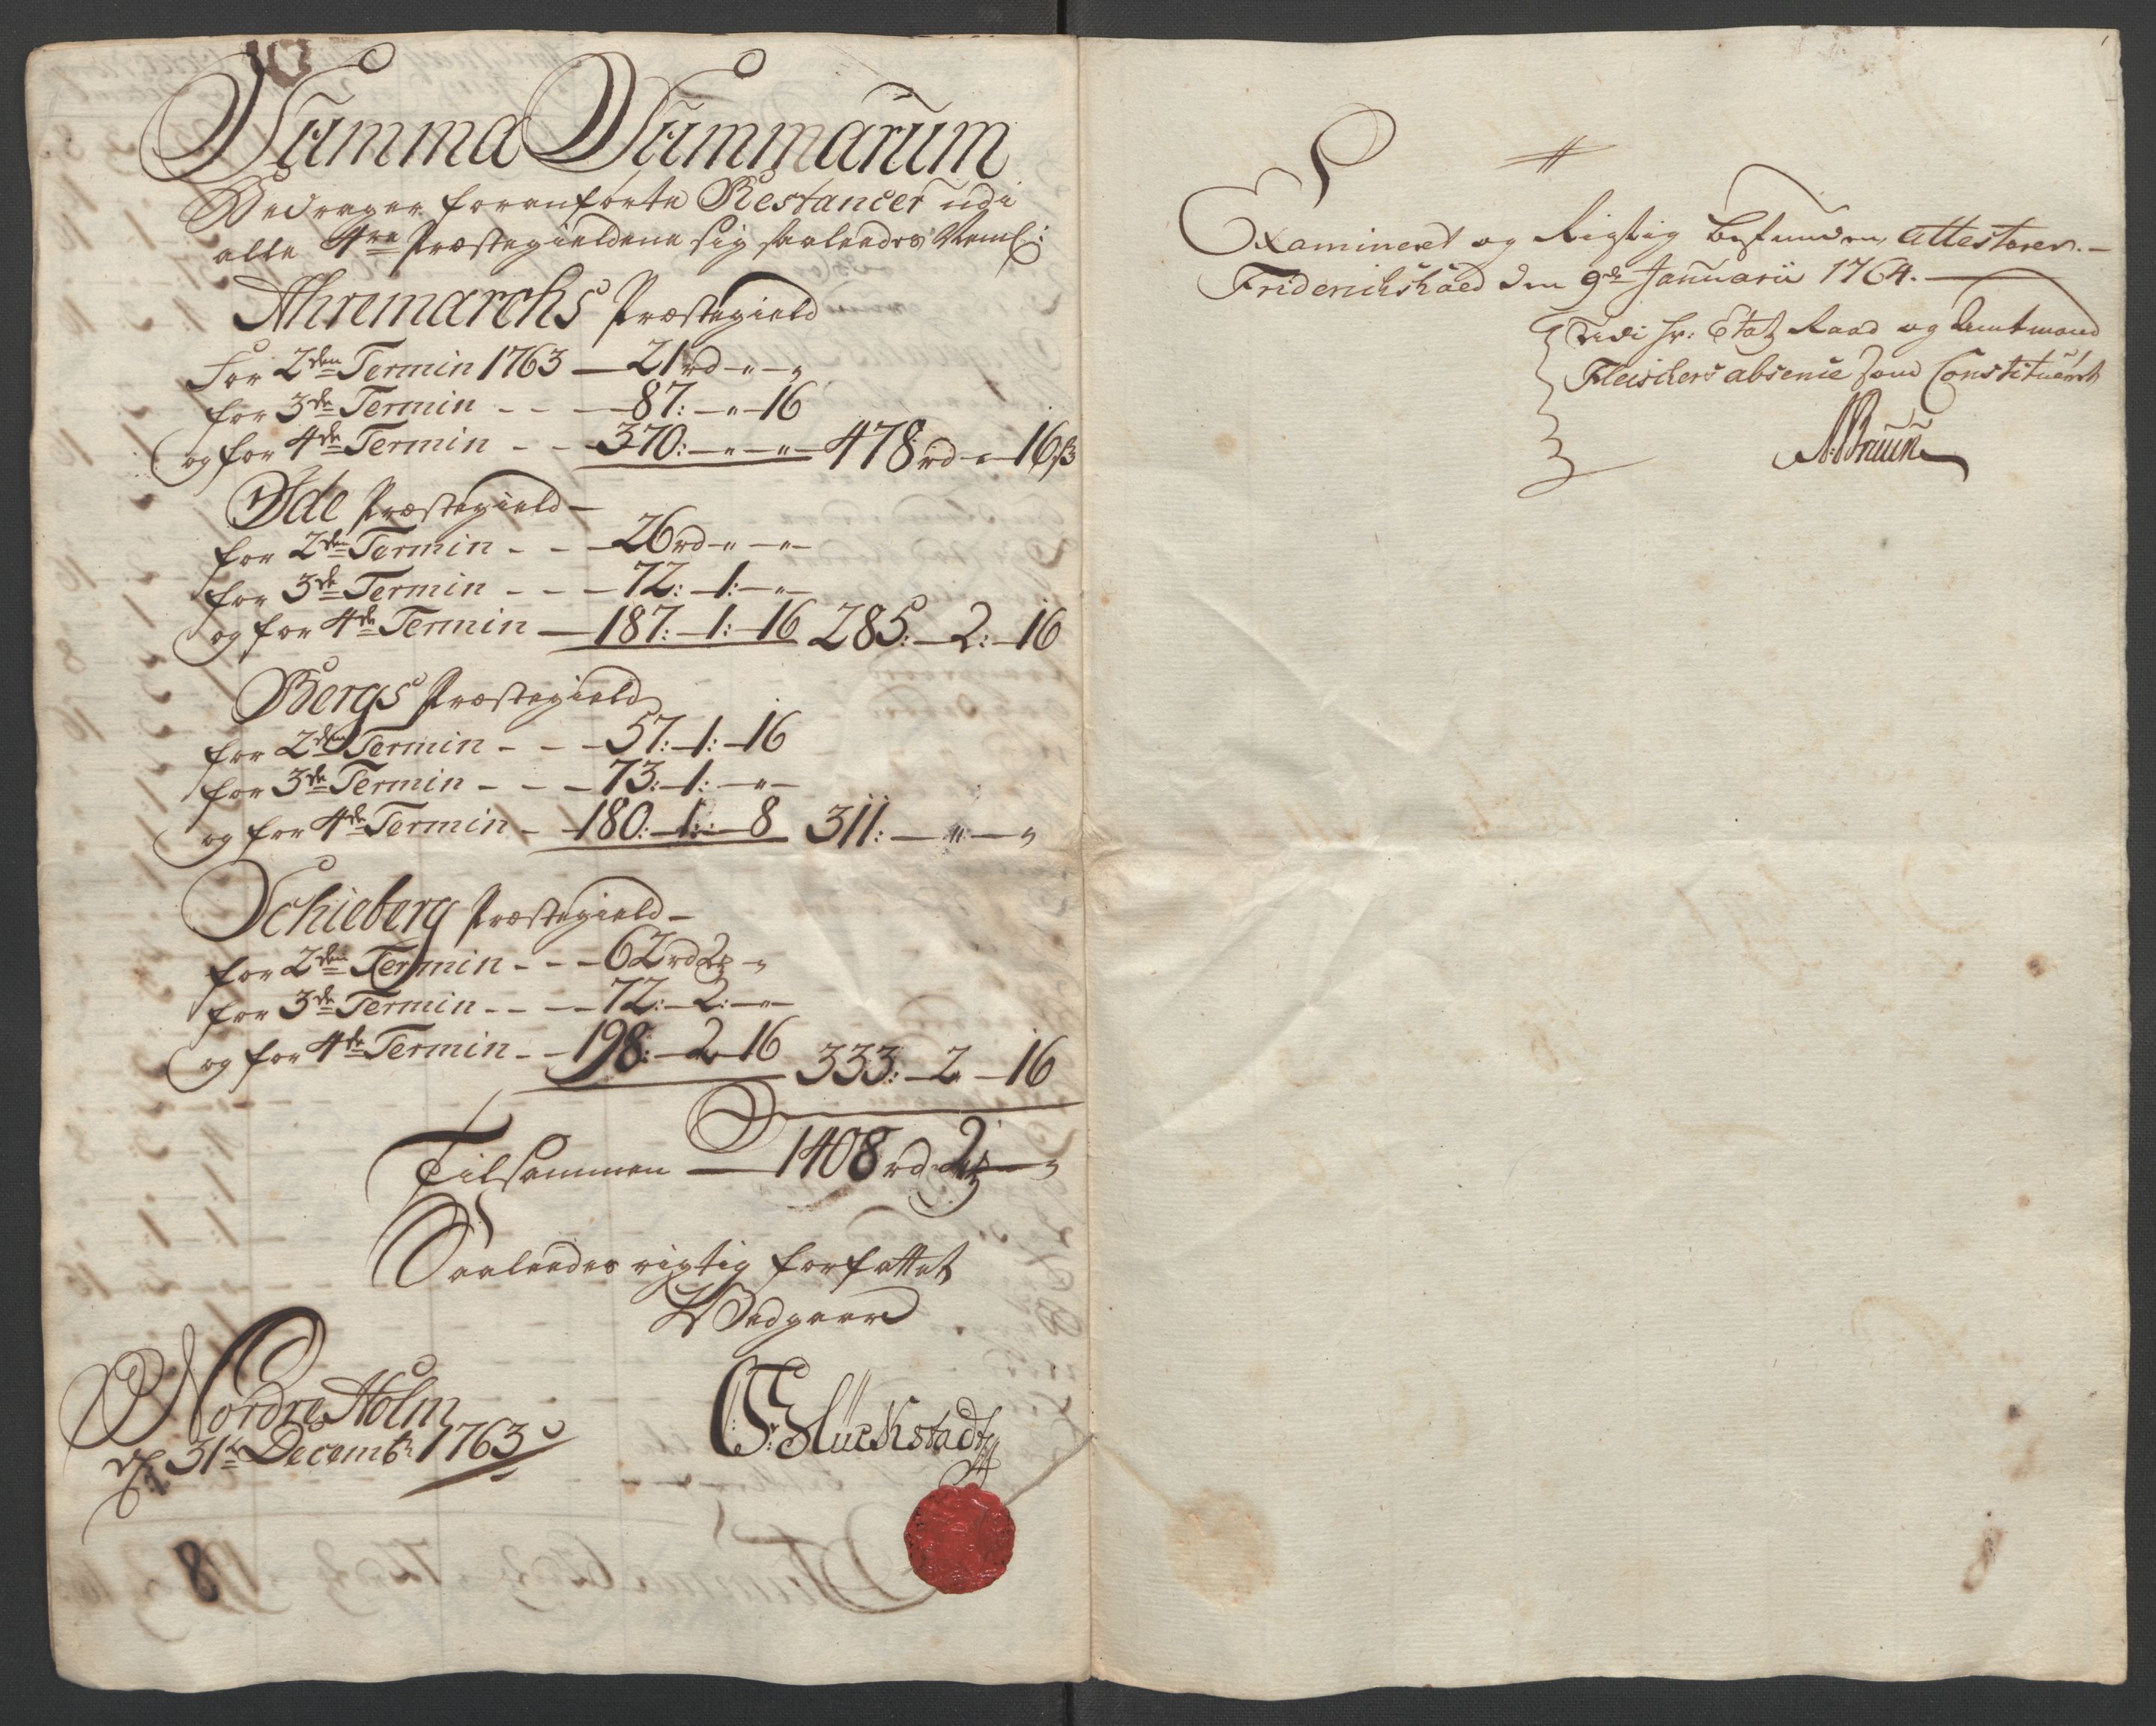 Summa Summarum
Bedrager foranførte Restancer udi
alle 4re Præstegieldene sig saaledes Neml:
Ahremarchs Præstegield
For 2den Termin 1763 — 21 rd - " - "
for 3de Termin - - — 87: — " - 16
og for 4de Termin - - 370: — " — " — 478 rd - " - 16 ß
Ide Præstegield —
for 2den Termin - - — 26 rd - " — " —
for 3de Termin - - — 72: — 1: — " —
og for 4de Termin — 187: — 1: — 16 285: — 2: — 16
Bergs Præstegield
for 2den Termin - - — 57: — 1: — 16
for 3de Termin - - — 73: — 1: — " —
og for 4de Termin - — 180: — 1: — 8 311: — " — "
Schieberg Præstegield —
for 2den Termin - - — 62 rd 2 - "
for 3de Termin - - — 72: — 2: — " —
og for 4de Termin - — 198: — 2 — 16 333: — 2 — 16
Tilsammen — 1408 rd 2 — "
Saaledes rigtig forfattet
Bedgaar
Nordre Holm
d: 31te Decembr 1763
G: Glückstadt
8
Examineret og Rigtig befunden, Attesterer. —
Friderichshald den 9de Januarii 1764. —
udi Hr: Etatz Raad og Amtmand
Fleischers absence som Constitueret
ABruun